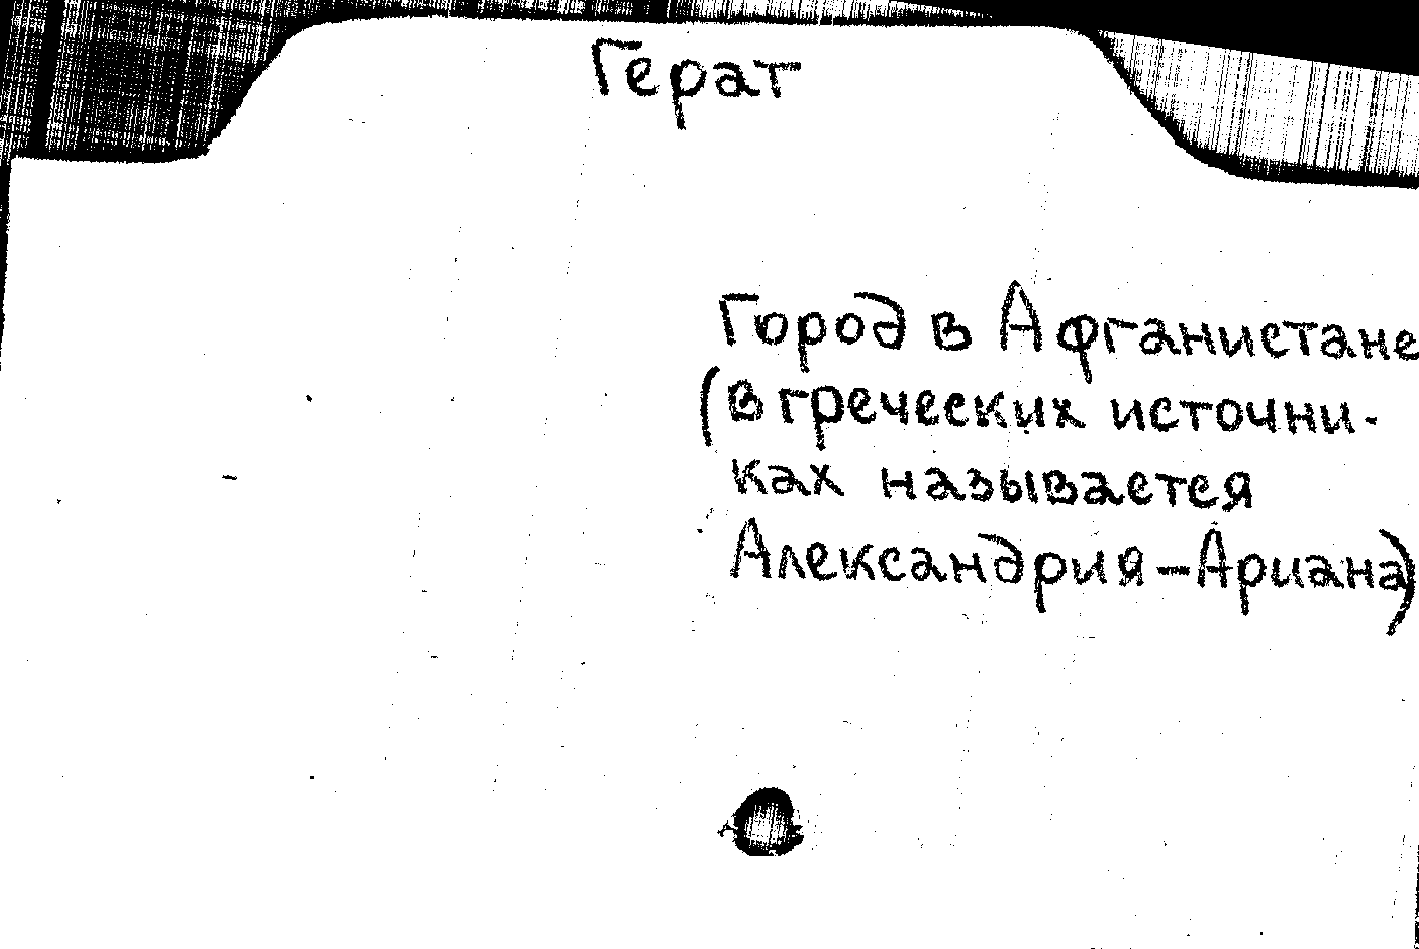 Герат
Город в Афганистане
(в греческих источни-
ках называется
Александрия-Ариана)